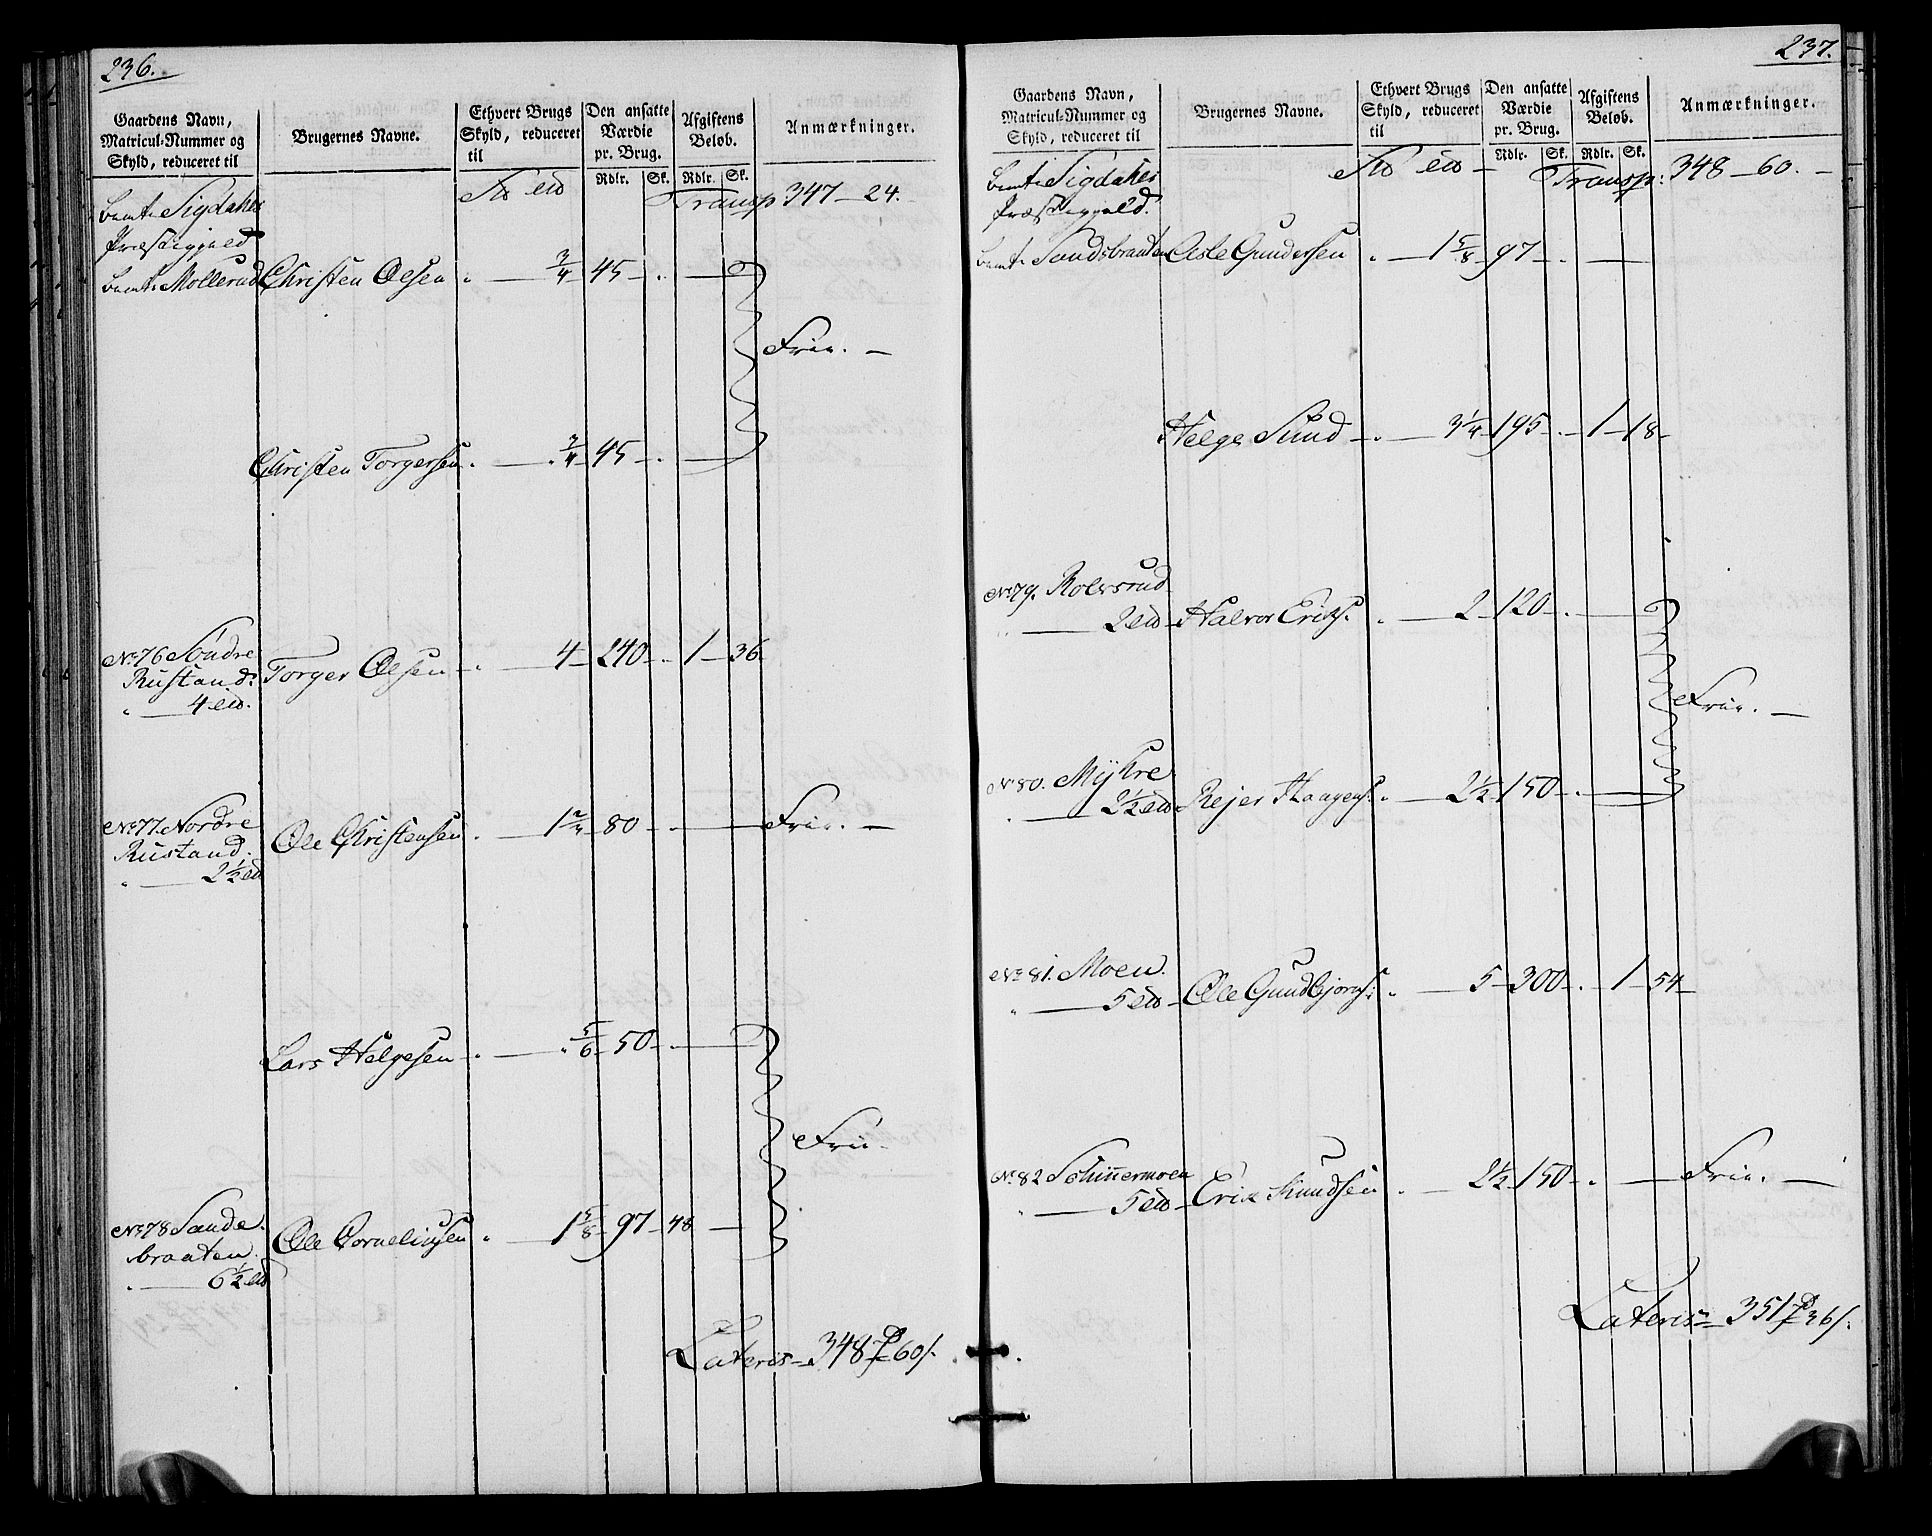 236.
Gaardens Navn, Matricul-Nummer og Skyld, reduceret til
Brugernes Navne.
Ethvert Brugs Skyld, reduceret til
Den ansatte Værdie pr. Brug.
Rdlr. Sk.
Afgiftens Beløb.
Rdlr. Sk.
Anmærkninger.
Transp: 347 - 24.
Sigdahls
Præstegjeld
Mollerud Christen Olsen " - 3/4 - 45 - " -
Frie. -
Christen Torgersen " - " 3/4 - 45 - " -
No 76 Søndre
Rustand. Torger Olsen - " - 4 - 240 - " 1 - 36.
" - 4 
No 77. Nordre
Rustand. Ole Christensen " - 1 2/3 - 80 - " - Frie. -
" - 2 1/2
Lars Helgesen - " - " 5/6 - 50 - " -
Frie.
No 78 Sands-
braaten. Ole Corneliusen " - 1 5/8 - 97 - 48 -
" - 6 1/2
Lateris - 348 - 60 s.
237.
Gaardens Navn, Matricul-Nummer og Skyld, reduceret til
Brugernes Navne.
Ethvert Brugs Skyld, reduceret til
Den ansatte Værdie pr. Brug.
Rdlr. Sk.
Afgiftens Beløb.
Rdlr. Sk.
Anmærkninger.
Transp: 348 - 60. -
Sigdahls
Præstegjeld.
Sandsbraaten Asle Gundersen " - 1 5/8 - 97 - " -
Helge Sund - " - 3 1/4 - 195 - " 1 - 18 -
No 79. Rolvsrud
" - 2 Halvor Eriks: " - 2 - 120 - " -
Frie. -
No 80. Mykre
" - 2 1/2 Rejer Haagens: " - 2 1/2 - 150 - " -
No 81. Moen.
" - 5 Ole Gundbjørns: " - 5 - 300 - " 1 - 54 -
No 82 Schinnermoen
" - 5 Erik Knudsen " - 2 1/2 - 150 - " - Frie. -
Lateris 351 - 36 s.